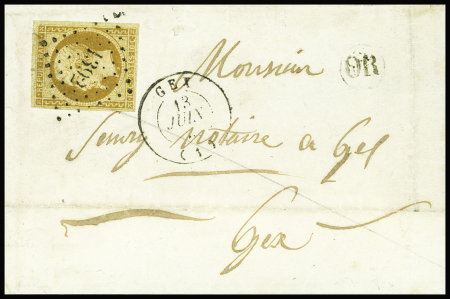 1395
GEX
13
JUIN
(1)
OR
Monsieur
notaire a Gex
Gex